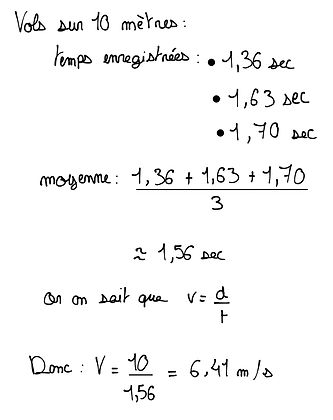 Vols sur 10 mètres :
temps enregistrées : • 1,36 sec
• 1,63 sec
• 1,70 sec
moyenne : 1,36 + 1,63 + 1,70
3
≈ 1,56 sec
or on sait que v = d
t
Donc : V = 10 = 6,41 m/s
1,56